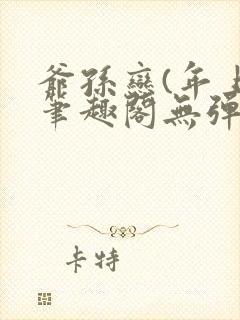 爺孫戀(年上
筆趣閣無彈
卡特